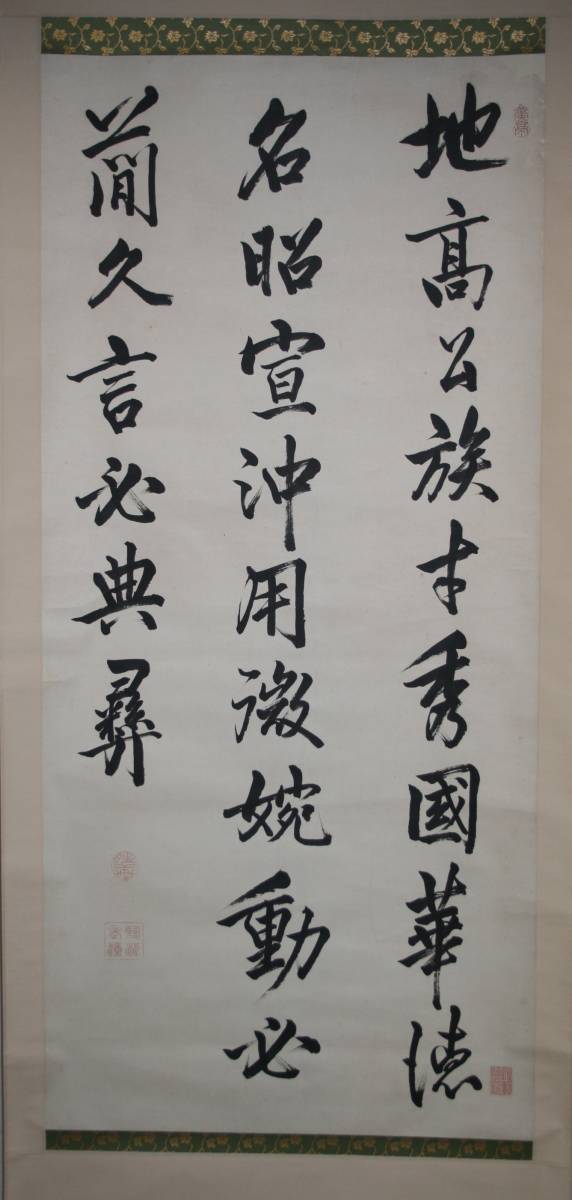 地高公族才秀國華徳
名昭宣沖用微婉動必
以簡久言必典彝